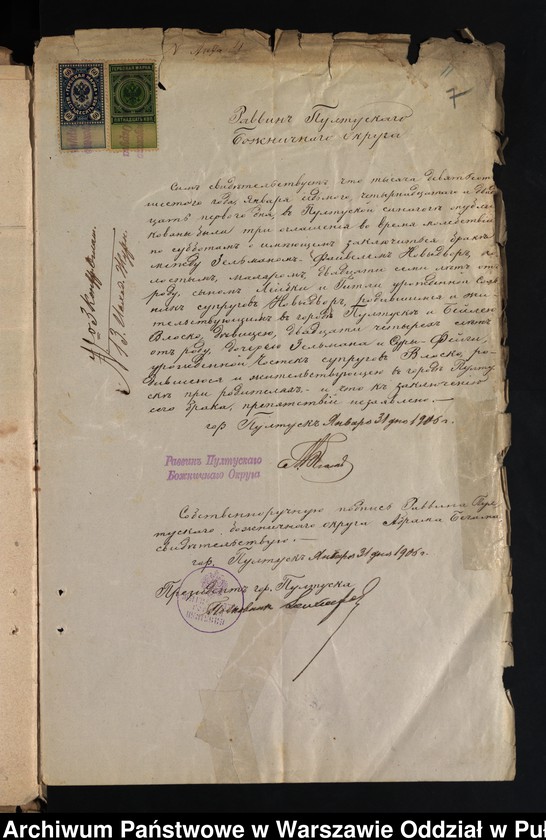 7
Раввинъ Пултускаго
Божничнаго Округа
Симъ свидѣтельствуетъ что тысяча девятьсотъ
шестого года, Января седьмого, четырнадцатаго и двад
цать перваго дня, въ Пултуской синагогѣ опубли
кованы были три оглашенія во время молебствій
по субботамъ о имѣющемъ заключиться бракѣ
между Гельманомъ Файвелемъ Новыдворъ, хо
лостымъ, маляромъ, двадцати семи лѣтъ отъ
роду, сыномъ и Гитли урожденной
супруговъ Новыдворъ, родившимся и жи
тельствующимъ въ городѣ Пултускъ и
Влоско, дѣвицею, двадцати четырехъ лѣтъ
отъ роду, дочерью Гельмана и Суры-Фейги,
урожденной Костекъ супруговъ Влоско, ро
дившеюся и жительствующею въ городѣ Пулту
скѣ при родителяхъ, и что къ заключенію
сего брака, препятствій незаявлено.—
гор. Пултускъ Января 31 дня 1906 г.
Раввинъ Пултускаго
Божничнаго Округа
Собственноручную подпись Раввина Пул
тускаго божничнаго округа Абрама
свидѣтельствую.—
гор. Пултускъ Января 31 дня 1906 г.
Президентъ гор. Пултуска
Archiwum Państwowe w Warszawie Oddział w Puł